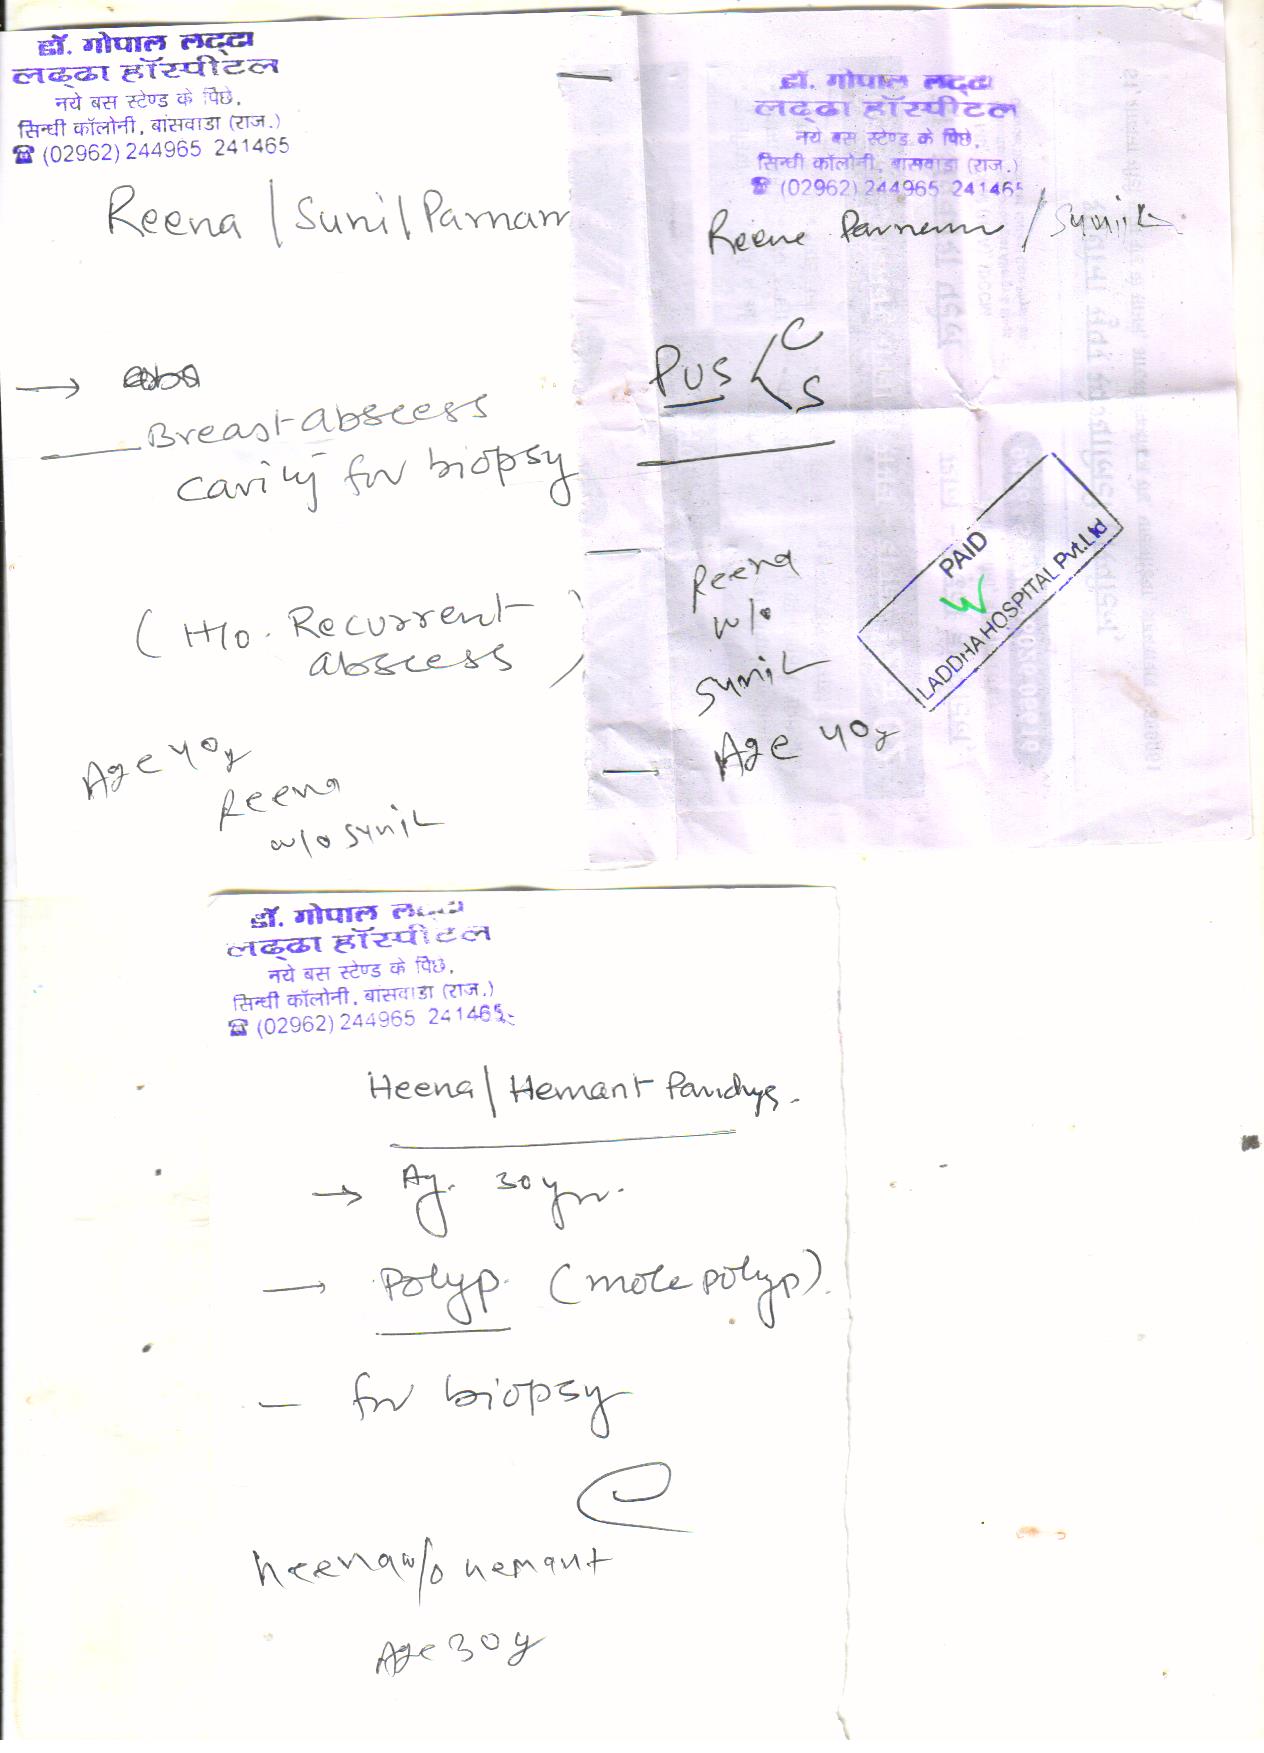 डॉ. गोपाल लद्ढा
लद्ढा हॉस्पीटल
नये बस स्टेण्ड के पिछे,
सिन्धी कॉलोनी, बांसवाडा (राज.)
☎ (02962) 244965 241465
Reena / Sunil Parnam
→
Breast abscess
cavity for biopsy
(H/o. Recurrent
abscess)
Age 40y
Reena
w/o sunil
डॉ. गोपाल लद्ढा
लद्ढा हॉस्पीटल
नये बस स्टेण्ड के पिछे,
सिन्धी कॉलोनी, बांसवाडा (राज.)
☎ (02962) 244965 241465
Reena / Sunil
Pus < C
S
Reena
w/o
sunil
Age 40y
PAID
LADDHA HOSPITAL Pvt.Ltd
डॉ. गोपाल
लद्ढा हॉस्पीटल
नये बस स्टेण्ड के पिछे,
सिन्धी कॉलोनी, बांसवाडा (राज.)
☎ (02962) 244965 241465
Heena / Hemant Pandya.
→ Ag. 30 yr.
→ Polyp. (mole polyp).
– for biopsy
heena w/o hemant
Age 30y